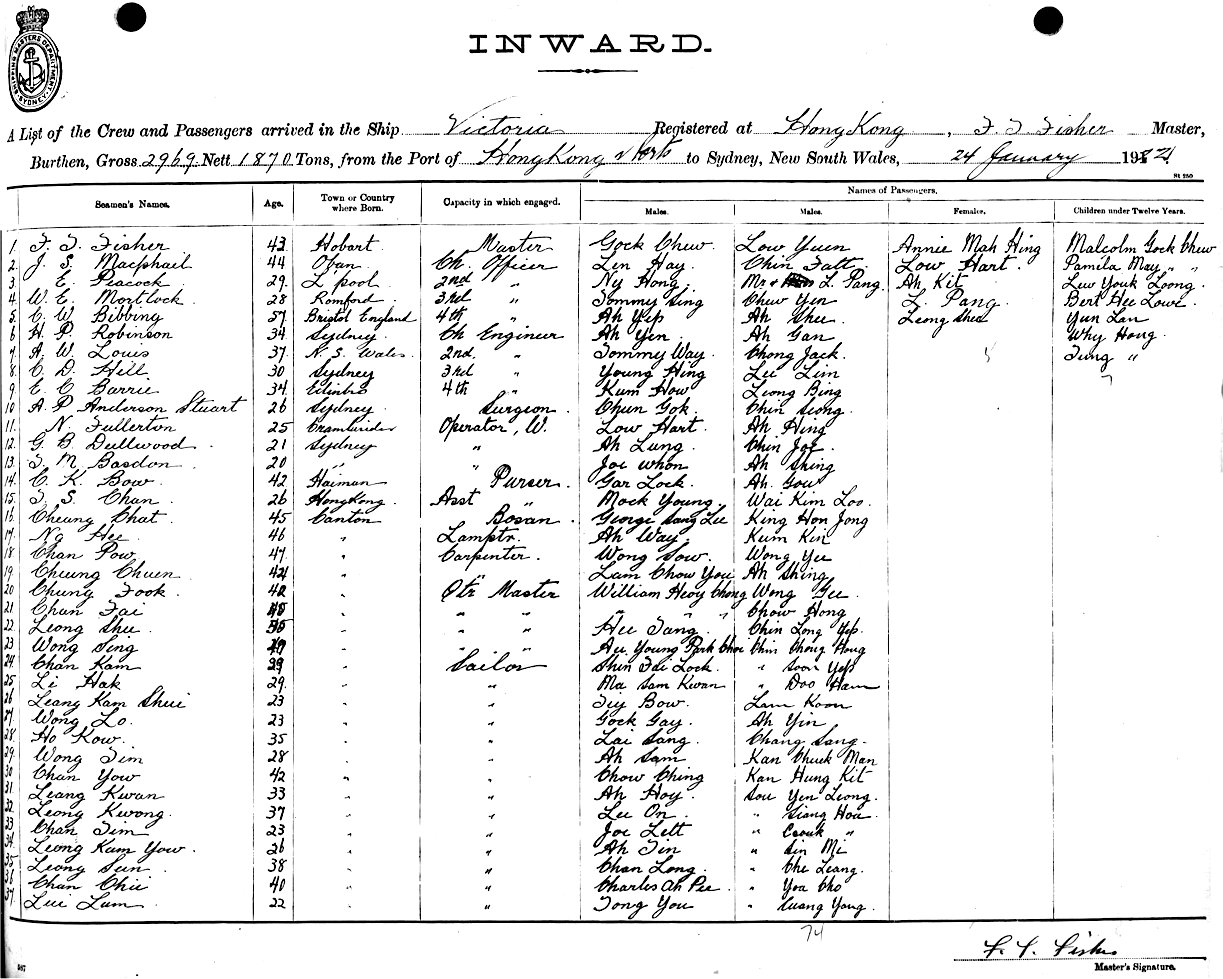 SHIPPING MASTERS DEPARTMENT SYDNEY
INWARD.
A List of the Crew and Passengers arrived in the Ship Victoria Registered at Hong Kong, F. T. Fisher Master,
Burthen, Gross 2969 Nett 1870 Tons, from the Port of Hong Kong & Ports to Sydney, New South Wales, 24 January 19
St 250
Names of Passengers.
Seamen's Names. Age. Town or Country where Born. Capacity in which engaged. Males. Males. Female. Children under Twelve Years.
1. F. T. Fisher 43 Hobart Master Gock Chew. Low Yuen Annie Mah Hing Malcolm Gock Chew
2. J. S. Macphail 44 Oban Ch. Officer Len Hay. Chin Fatt Low Hart. Pamila May " "
3. E. Peacock 29 L'pool 2nd " Ny Hong. Mr + L. Pang. Ah Kit Lew Youk Loong.
4. W. E. Mortlock 28 Romford 3rd " Tommy Sing Chew Yin L. Pang Bert Hee Lowe.
5. C. W. Bibbing 57 Bristol England 4th " Ah Yep Ah Shee Leong Shee Yun Lan
6. H. P. Robinson 34 Sydney Ch Engineer Ah Yen Ah Gan Why Hong.
7. A. W. Louis 37 N. S. Wales 2nd. " Tommy Way. Chong Jack. Tung "
8. C. D. Hill 30 Sydney 3rd " Young Hing Lee Lim 7
9. E. C. Barrie 34 Edinbro 4th " Kum How Leong Bing
10 A. P. Anderson Stuart 26 Sydney Surgeon Chun Gok. Chin Seong
11. N. Fullerton 25 Operator, W. Low Hart. Ah Hing
12. G. B. Dullwood 21 Sydney " Ah Lung. Chin Joe
13. T. M. Basdon 20 " " Joe Whon Ah Shing
14. C. K. Bow 42 Hainan Purser Gar Lock. Ah Gow
15. T. S. Chan 26 HongKong Asst " Mock Young. Wai Kim Loo
16. Cheung Chat 45 Canton Bosan George Sang Lee King Hon Jong
17. Ng Hee 46 " Lamptr. Ah Way. Kum Kin
18 Chan Pow 47 " Carpenter. Wong Sow. Wong Yee
19 Cheung Chuen " Lam Chow You Ah Shing
20 Chung Fook " Qtr Master William Heoy Chong Wong Gee
21 Chan Tai " " " " " " Chow Hong
22 Leong Shu " " " Hee Tang Chin Long Yep
23 Wong Sing " " " Au Young Park Choi Chin Chong Hong
24. Chan Kam 29 " Sailor Shin Tai Lock. " Soon Yep
25 Li Hak 29 " " Ma Sam Kwan " Doo Ham
26 Leang Kam Shui 23 " " Tiy Bow. Lam Koon
27. Wong Lo 23 " " Gock Gay. Ah Yin
28. Ho Kow 35 " " Lai Sang. Chang Sang.
29. Wong Tim 28 " " Ah Sam Kan Chuck Man
30 Chan Yow 42 " " Chow Ching Kan Hung Kit
31 Leang Kwan 33 " " Ah Hoy. Sou Yen Leong.
32. Leong Kwong. 37 " " Lee On. " Siang Hou
33 Chan Tim 23 " " Joe Lett " "
34. Leong Kam Yow. 26 " " Ah Tin " Sin Mi
35 Leong Sun 38 " " Chan Long. " Che Leang.
36 Chan Chii 40 " " Charles Ah Pee " Yoa Cho
37. Lui Lum 22 " " Tong You " Cuang Yong.
74
F. T. Fisher
Master's Signature.